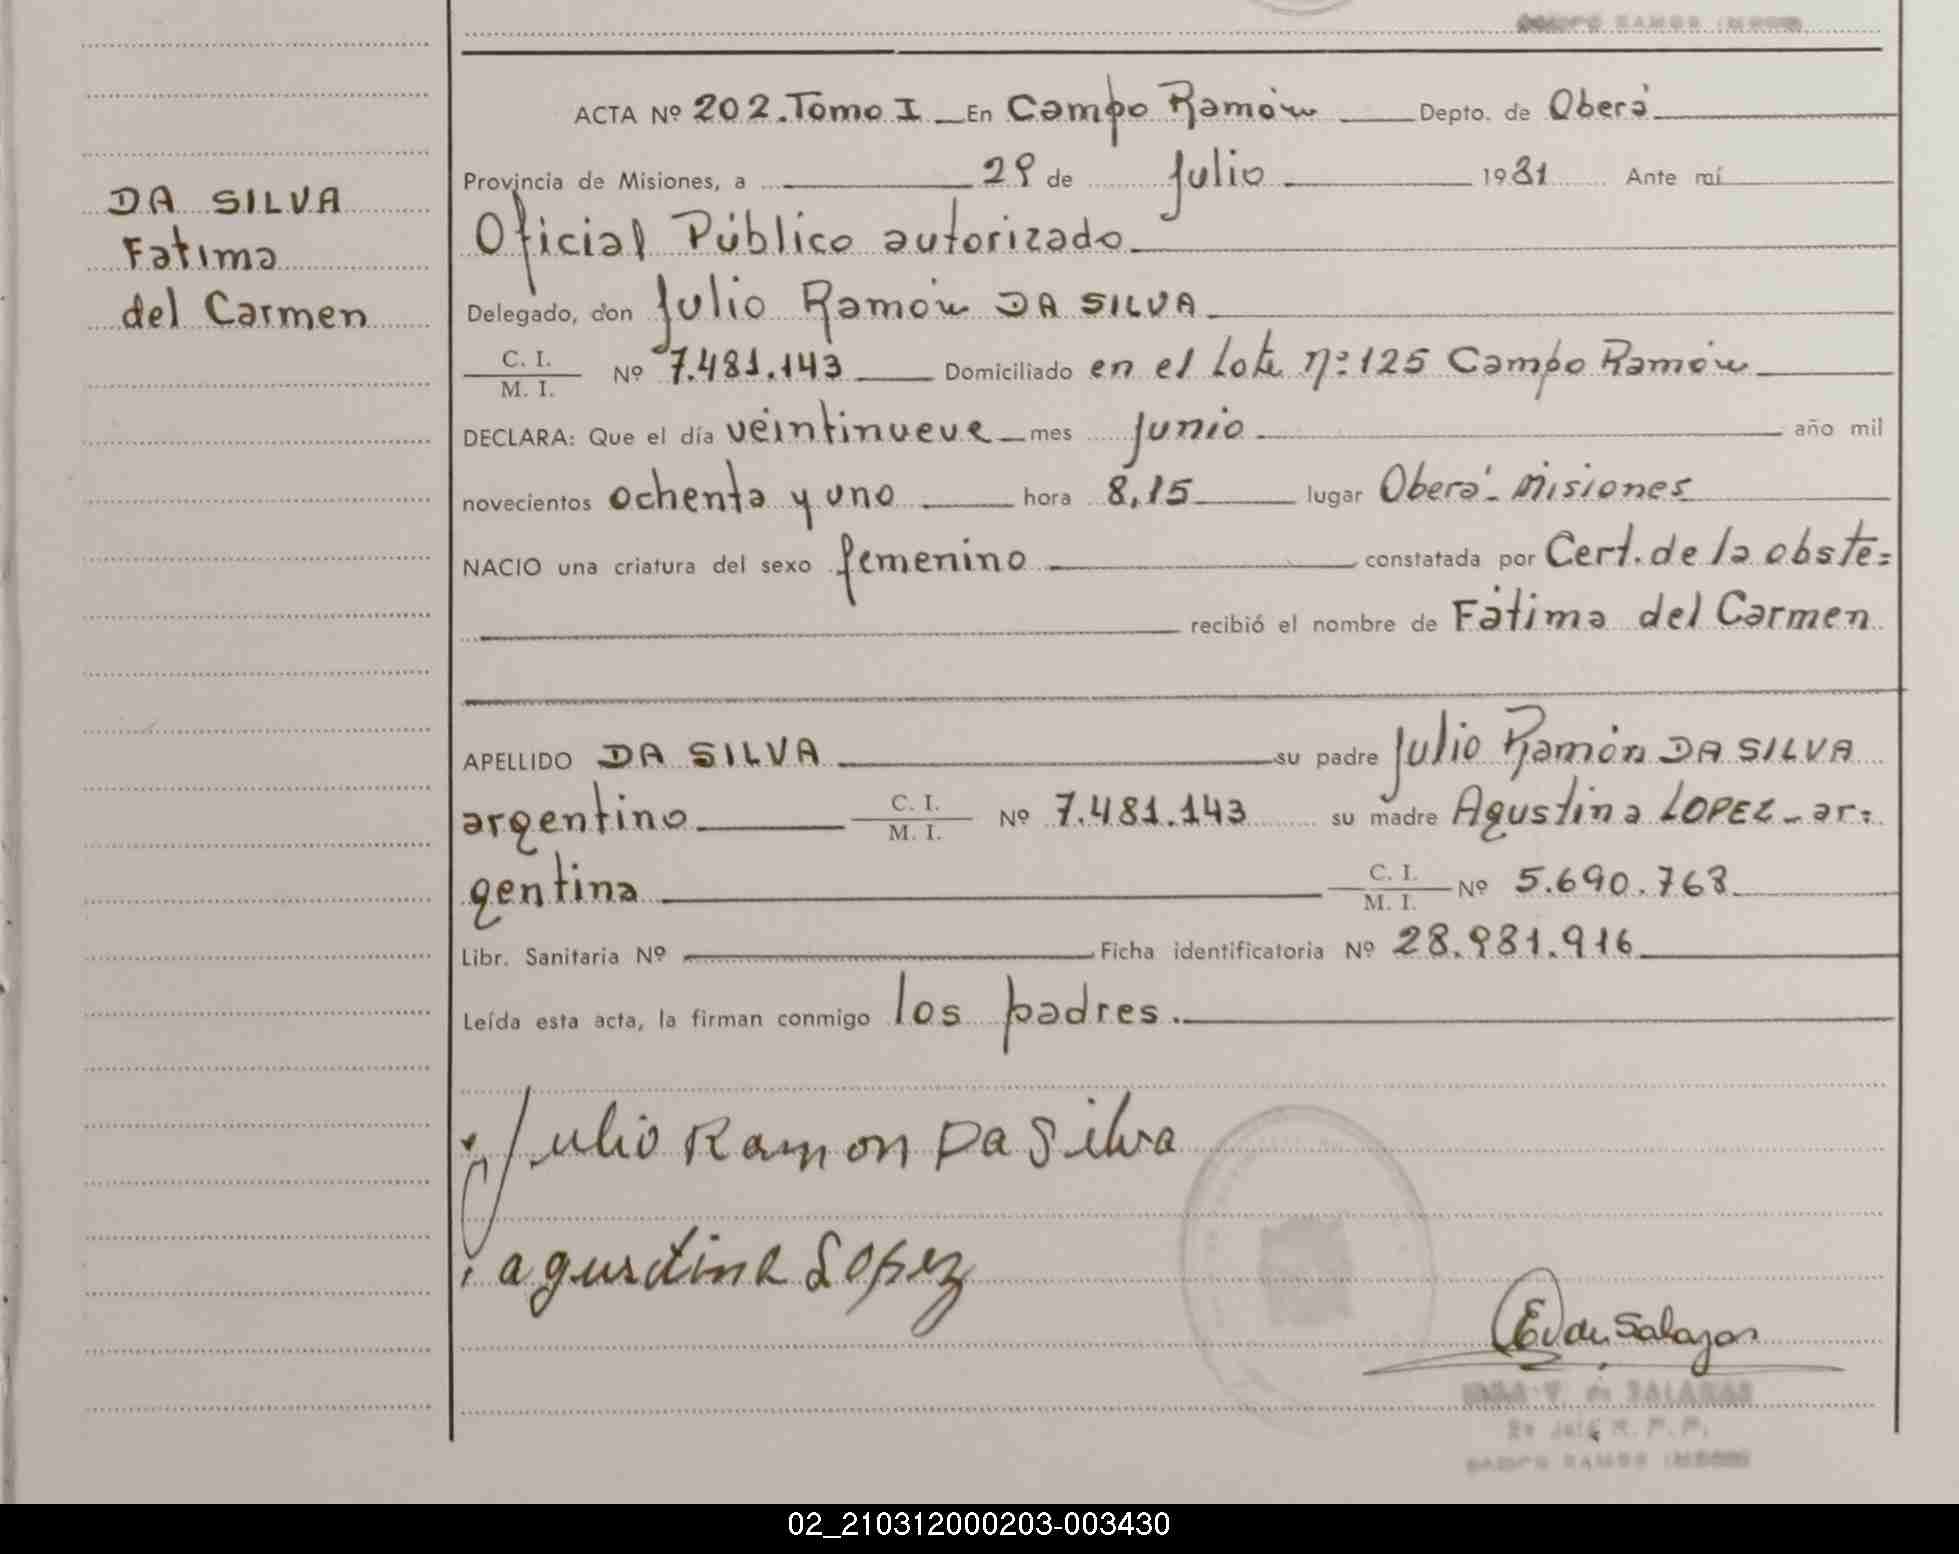 ACTA Nº 202. Tomo I En Campo Ramón Depto. de Oberá
Provincia de Misiones, a 29 de Julio 1981 Ante mí
DA SILVA
Oficial Público autorizado
Fatima
Delegado, don Julio Ramón DA SILVA
del Carmen
C. I.
M. I. Nº 7.481.143 Domiciliado en el Lote nº: 125 Campo Ramón
DECLARA: Que el día veintinueve mes Junio año mil
novecientos ochenta y uno hora 8,15 lugar Oberá - Misiones
NACIO una criatura del sexo femenino constatada por Cert. de la obste=
recibió el nombre de Fátima del Carmen
APELLIDO DA SILVA su padre Julio Ramón DA SILVA
argentino C. I. M. I. Nº 7.481.143 su madre Agustina LOPEZ - ar=
gentina C. I. M. I. Nº 5.690.768
Libr. Sanitaria Nº Ficha identificatoria Nº 28.981.916
Leída esta acta, la firman conmigo los padres.
Julio Ramon Da Silva
agustina Lopez
E. V. de Salazar
V. de SALAZAR
CAMPO RAMON
02_210312000203-003430